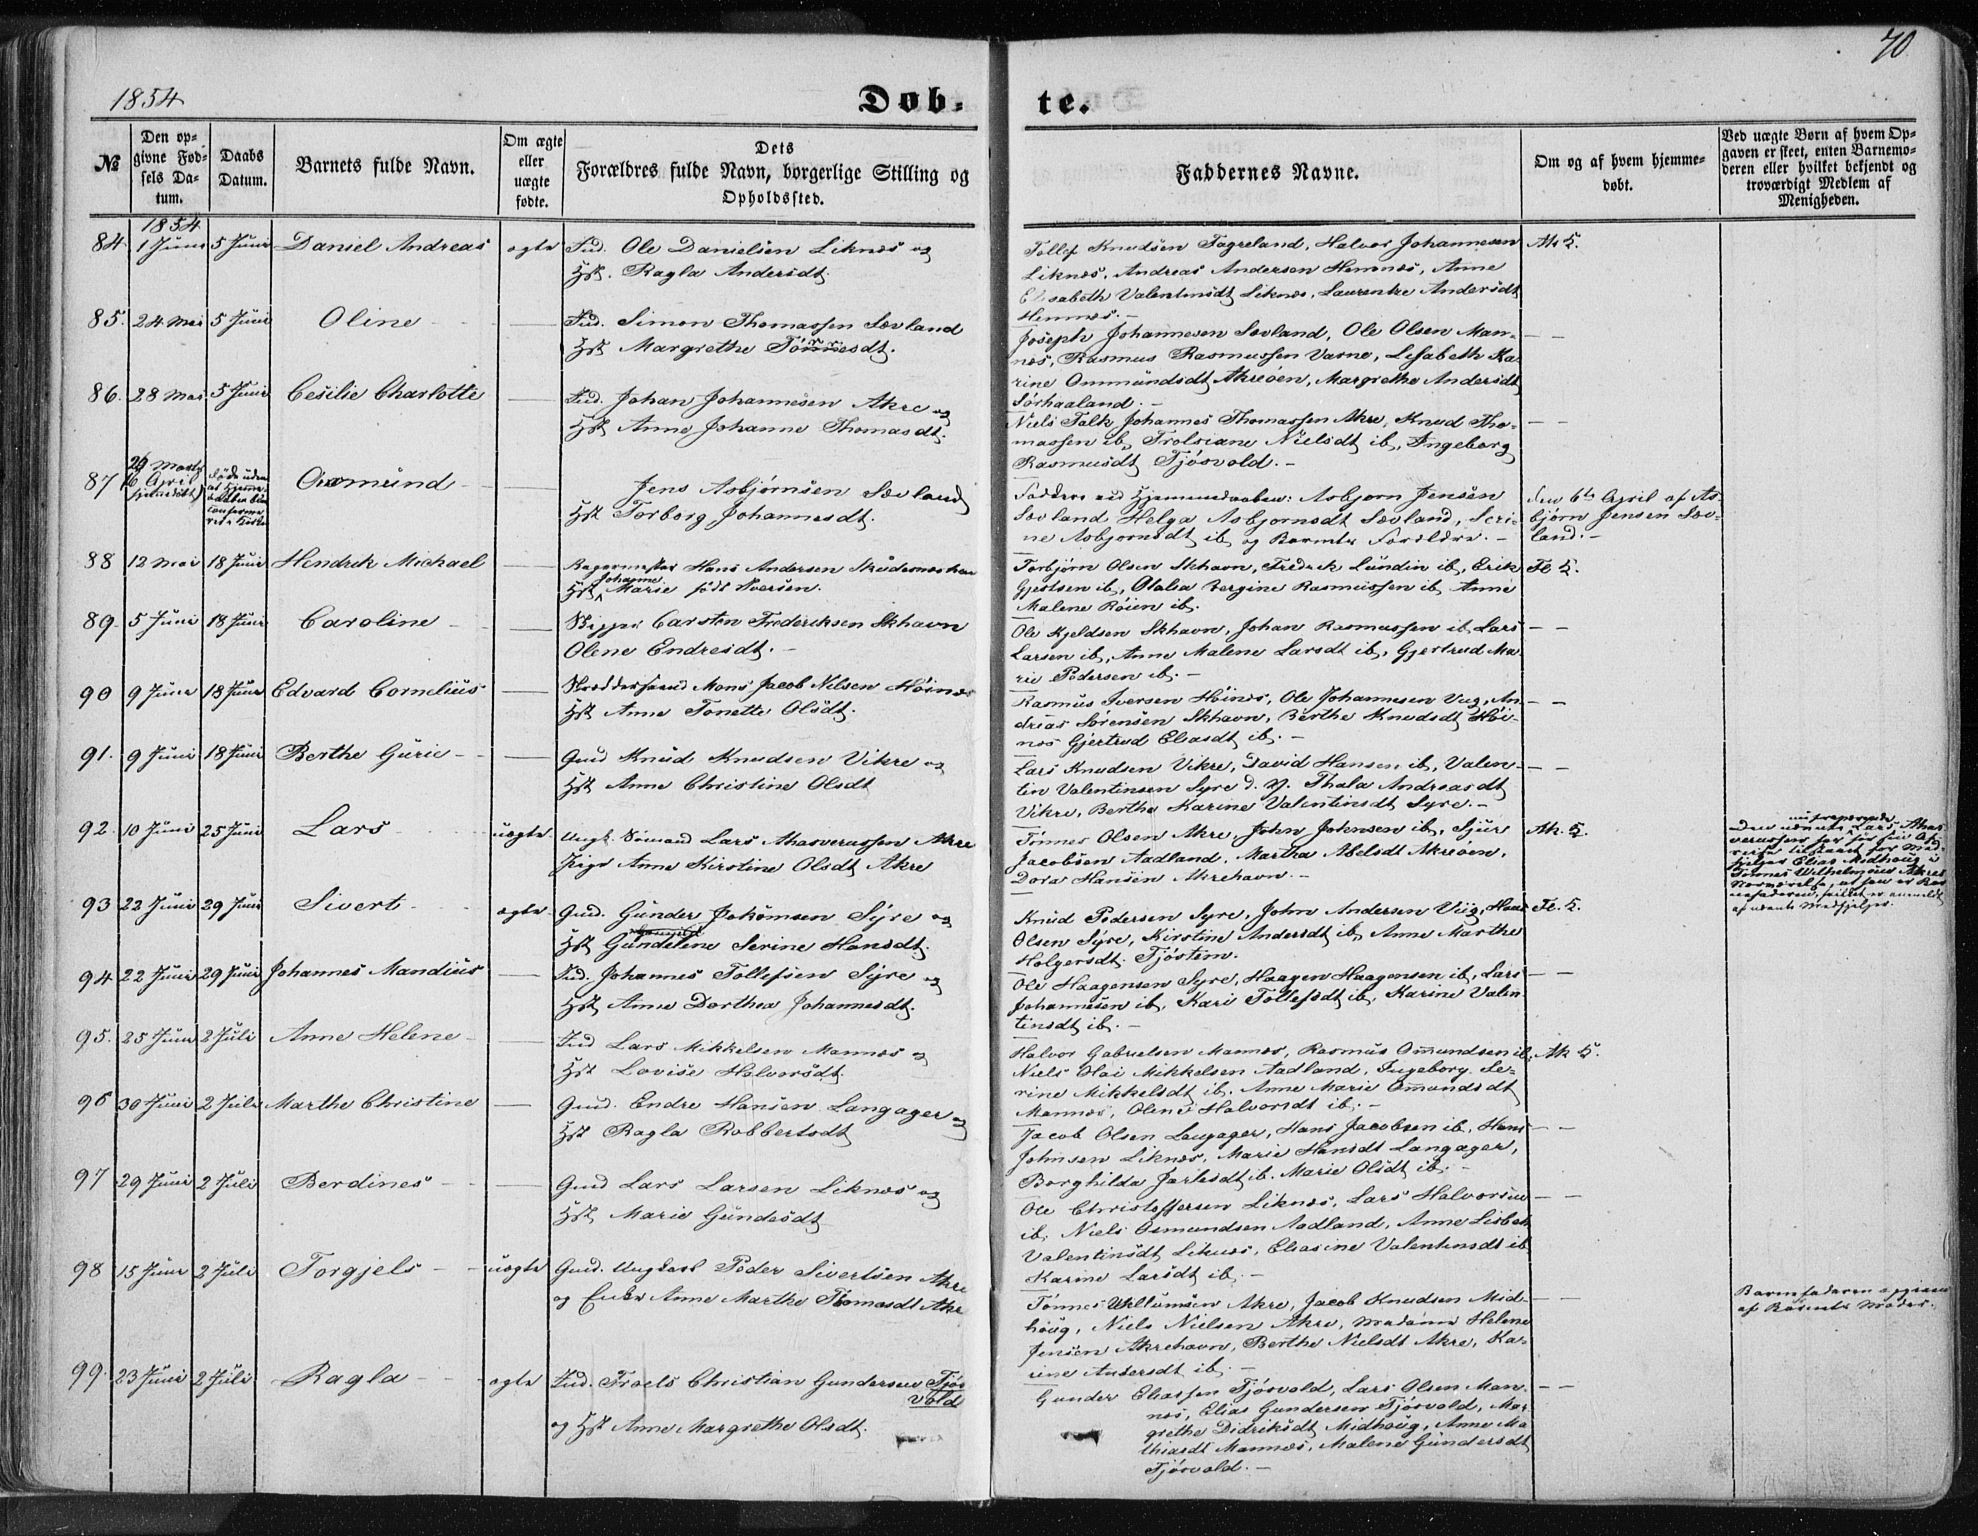 1854
Döb-
te.
70
№
Den op-
givne Fød-
sels Da-
tum.
Daabs
Datum.
Barnets fulde Navn.
Om ægte
eller
uægte
fødte.
Dets
Forældres fulde Navn, borgerlige Stilling og
Opholdssted.
Faddernes Navne.
Om og af hvem hjemme-
døbt.
Ved uægte Børn af hvem Op-
gaven er skeet, enten Barnemo-
deren eller hvilket bekjendt og
troværdigt Medlem af
Menigheden.
1854
84. 1 Juni 5 Juni Daniel Andreas ægte Ole Danielsen Liknæs og
Ragla Andersdt.
Tollef Knudsen Fagreland, Halvor Johannesen
Liknæs, Andreas Andersen Hemnæs, Anne
Elisabeth Valentinsdt Liknæs, Laurentze Andersdt
Hemnæs. –
Ak. K.
85. 24 Mai 5 Juni Oline
Simon Thomassen Sævland
Margrethe Tønnesdt.
Joseph Johannesen Sævland, Ole Olsen Man-
næs, Rasmus Rasmussen Varne, Lisabeth Ka-
rine Ommundsdt Akreøen, Margrethe Andersdt
Sørhaaland. –
86. 28 Mai 5 Juni Cesilie Charlotte
Johan Johannesen Akre og
Anne Johanne Thomasdt.
Niels Falk Johannes Thomassen Akre, Knud Tho-
massen ib, Nielsdt ib, Ingeborg
Rasmusdt Tjøsvold. –
87 29 Marts
6 April
hjemmedøbt
Osmund
Jens Asbjørnsen Sævland
Torborg Johannesdt.
Faddere ved Hjemmedaaben: Asbjørn Jensen
Sævland Helga Asbjørnsdt Sævland, Seri-
ne Asbjørnsdt ib og Barnets Forældre. –
den 6te April af As-
bjørn Jensen Sæv-
land. –
88 12 Mai 18 Juni Hendrik Michael
Hans Andersen Skudesneshavn
Johanne
Marie født Iversen.
Torbjørn Olsen Skhavn, Fredrik Lundin ib, Erik
Gjertsen ib, Olalia Bergine Rasmussen ib, Anne
Malene Røien ib.
Fe. K.
89. 5 Juni 18 Juni Caroline
Skipper Carsten Frederiksen Skhavn
Olene Endresdt. –
Ole Kjeldsen Skhavn, Johan Rasmussen ib, Lars
Larsen ib, Anne Malene Larsdt ib, Gjertrud Ma-
rie Pedersen ib. –
90 9 Juni 18 Juni Edvard Cornelius
Mons Jacob Nilsen Høinæs
Anne Tonette Olsdt.
Rasmus Iversen Høinæs, Ole Johannesen Veg, An-
dreas Sørensen Skhavn, Berthe Knudsdt Høi-
næs Gjertrud Eliasdt ib. –
91. 9 Juni 18 Juni Berthe Gurie
Gmd Knud Knudsen Vikre og
Anne Christine Olsdt
Lars Knudsen Vikre, David Hansen ib, Valen-
tin Valentinsen Syre d. y. Thala Andreasdt
Vikre, Berthe Karine Valentinsdt Syre. –
92. 10 Juni 25 Juni Lars uægte
Ungk. Sømand Lars Ahasverussen Akre
Pige Anne Kirstine Olsdt Akre
Tønnes Olsen Akre, John Johnsen ib, Sjur
Jacobsen Aadland. Martha Abelsdt Akreøen.
Dora Hansen Akrehavn. –
Ak. K.
Den nævnte Lars Ahas-
verussen har før sin Af-
reise tilstaaet for Med-
hjelper Elias Midhoug i
Tønnes Wilhelmsens Akres
Nærværelse, at han er Bar-
nefaderen, hvilket er anmeldt
af nævnte Medhjelper.
93 22 Juni 29 Juni Sivert ægte
Gmd. Gunder Johannsen Syre og
Gundelene Serine Hansdt.
Knud Pedersen Syre, John Andersen Viig, Hans
Olsen Syre, Kirstine Andersdt ib, Anne Marthe
Holgersdt. Tjøstem.
Fe. K.
94 22 Juni 29 Juni Johannes Mandius
Johannes Tollefsen Syre og
Anne Dorthea Johannesdt.
Ole Haagensen Syre, Haagen Haagensen ib, Lars
Johannesen ib, Kari Tollefsdt ib, Karine Valen-
tinsdt ib. –
95. 25 Juni 2 Juli Anne Helene
Lars Mikkelsen Mannæs og
Lovise Halvorsdt.
Halvor Gabrielsen Mannæs, Rasmus Omundsen ib,
Niels Olai Mikkelsen Aadland, Ingeborg Se-
rine Mikkelsdt ib, Anne Marie Omundsdt
Mannæs, Olene Halvorsdt ib. –
Ak K.
96 30 Juni 2 Juli Marthe Christine
Gmd. Endre Hansen Langager og
Ragla Robbertsdt
Jacob Olsen Langager, Hans Jacobsen ib, Hans
Johnsen Liknæs, Marie Hansdt Langager,
Borghilda Jarlesdt ib. Marie Olsdt ib. –
97 29 Juni 2 Juli Berdines
Gmd Lars Larsen Liknæs og
Marie Gundesdt
Ole Christoffersen Liknæs, Lars Halvorsen
ib, Niels Osmundsen Aadland, Anne Lisbeth
Valentinsdt Liknæs, Eliasine Valentinsdt ib
Karine Larsdt ib. –
98 15 Juni 2 Juli Torgjels uægte
Gmd. Peder Sivertsen Akre
og Enke Anne Marthe Thomasdt Akre
Tønnes Willumsen Akre, Jacob Knudsen Mid-
houg, Niels Nielsen Akre, Madame Helene
Jensen Akrehavn, Berthe Nielsdt Akre, Ka-
rine Andersdt ib. –
Barnefaderen opgiven
af Barnets Moder.
99. 23 Juni 2 Juli Ragla ægte
Troels Christian Gundersen Tjøs-
vold
og Anne Margrethe Olsdt.
Gunder Eliassen Tjøsvold, Lars Olsen Man-
næs, Elias Gundersen Tjøsvold, Mar-
grethe Didriksdt Midhoug, Anne Ma-
thiasdt Mannæs, Malene Gundersdt
Tjøsvold. –